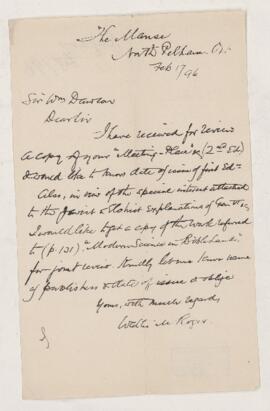 The Manse
North Pelham Ont
Feb 17/96
Sir Wm Dawson
Dear Sir
I have received for review
a copy of your "Meeting-Place &c (2nd Ed)
& would like to know date of issue of first Ed-
Also, in view of the special interest attached
to the Elohist explanation of Gen
I would like to get a copy of the work referred
to (p 121) "Modern Science in Bible Lands"
for joint review. Kindly let me know name
of publishers & date of issue & oblige
Yours, with much regards,
M. Roger